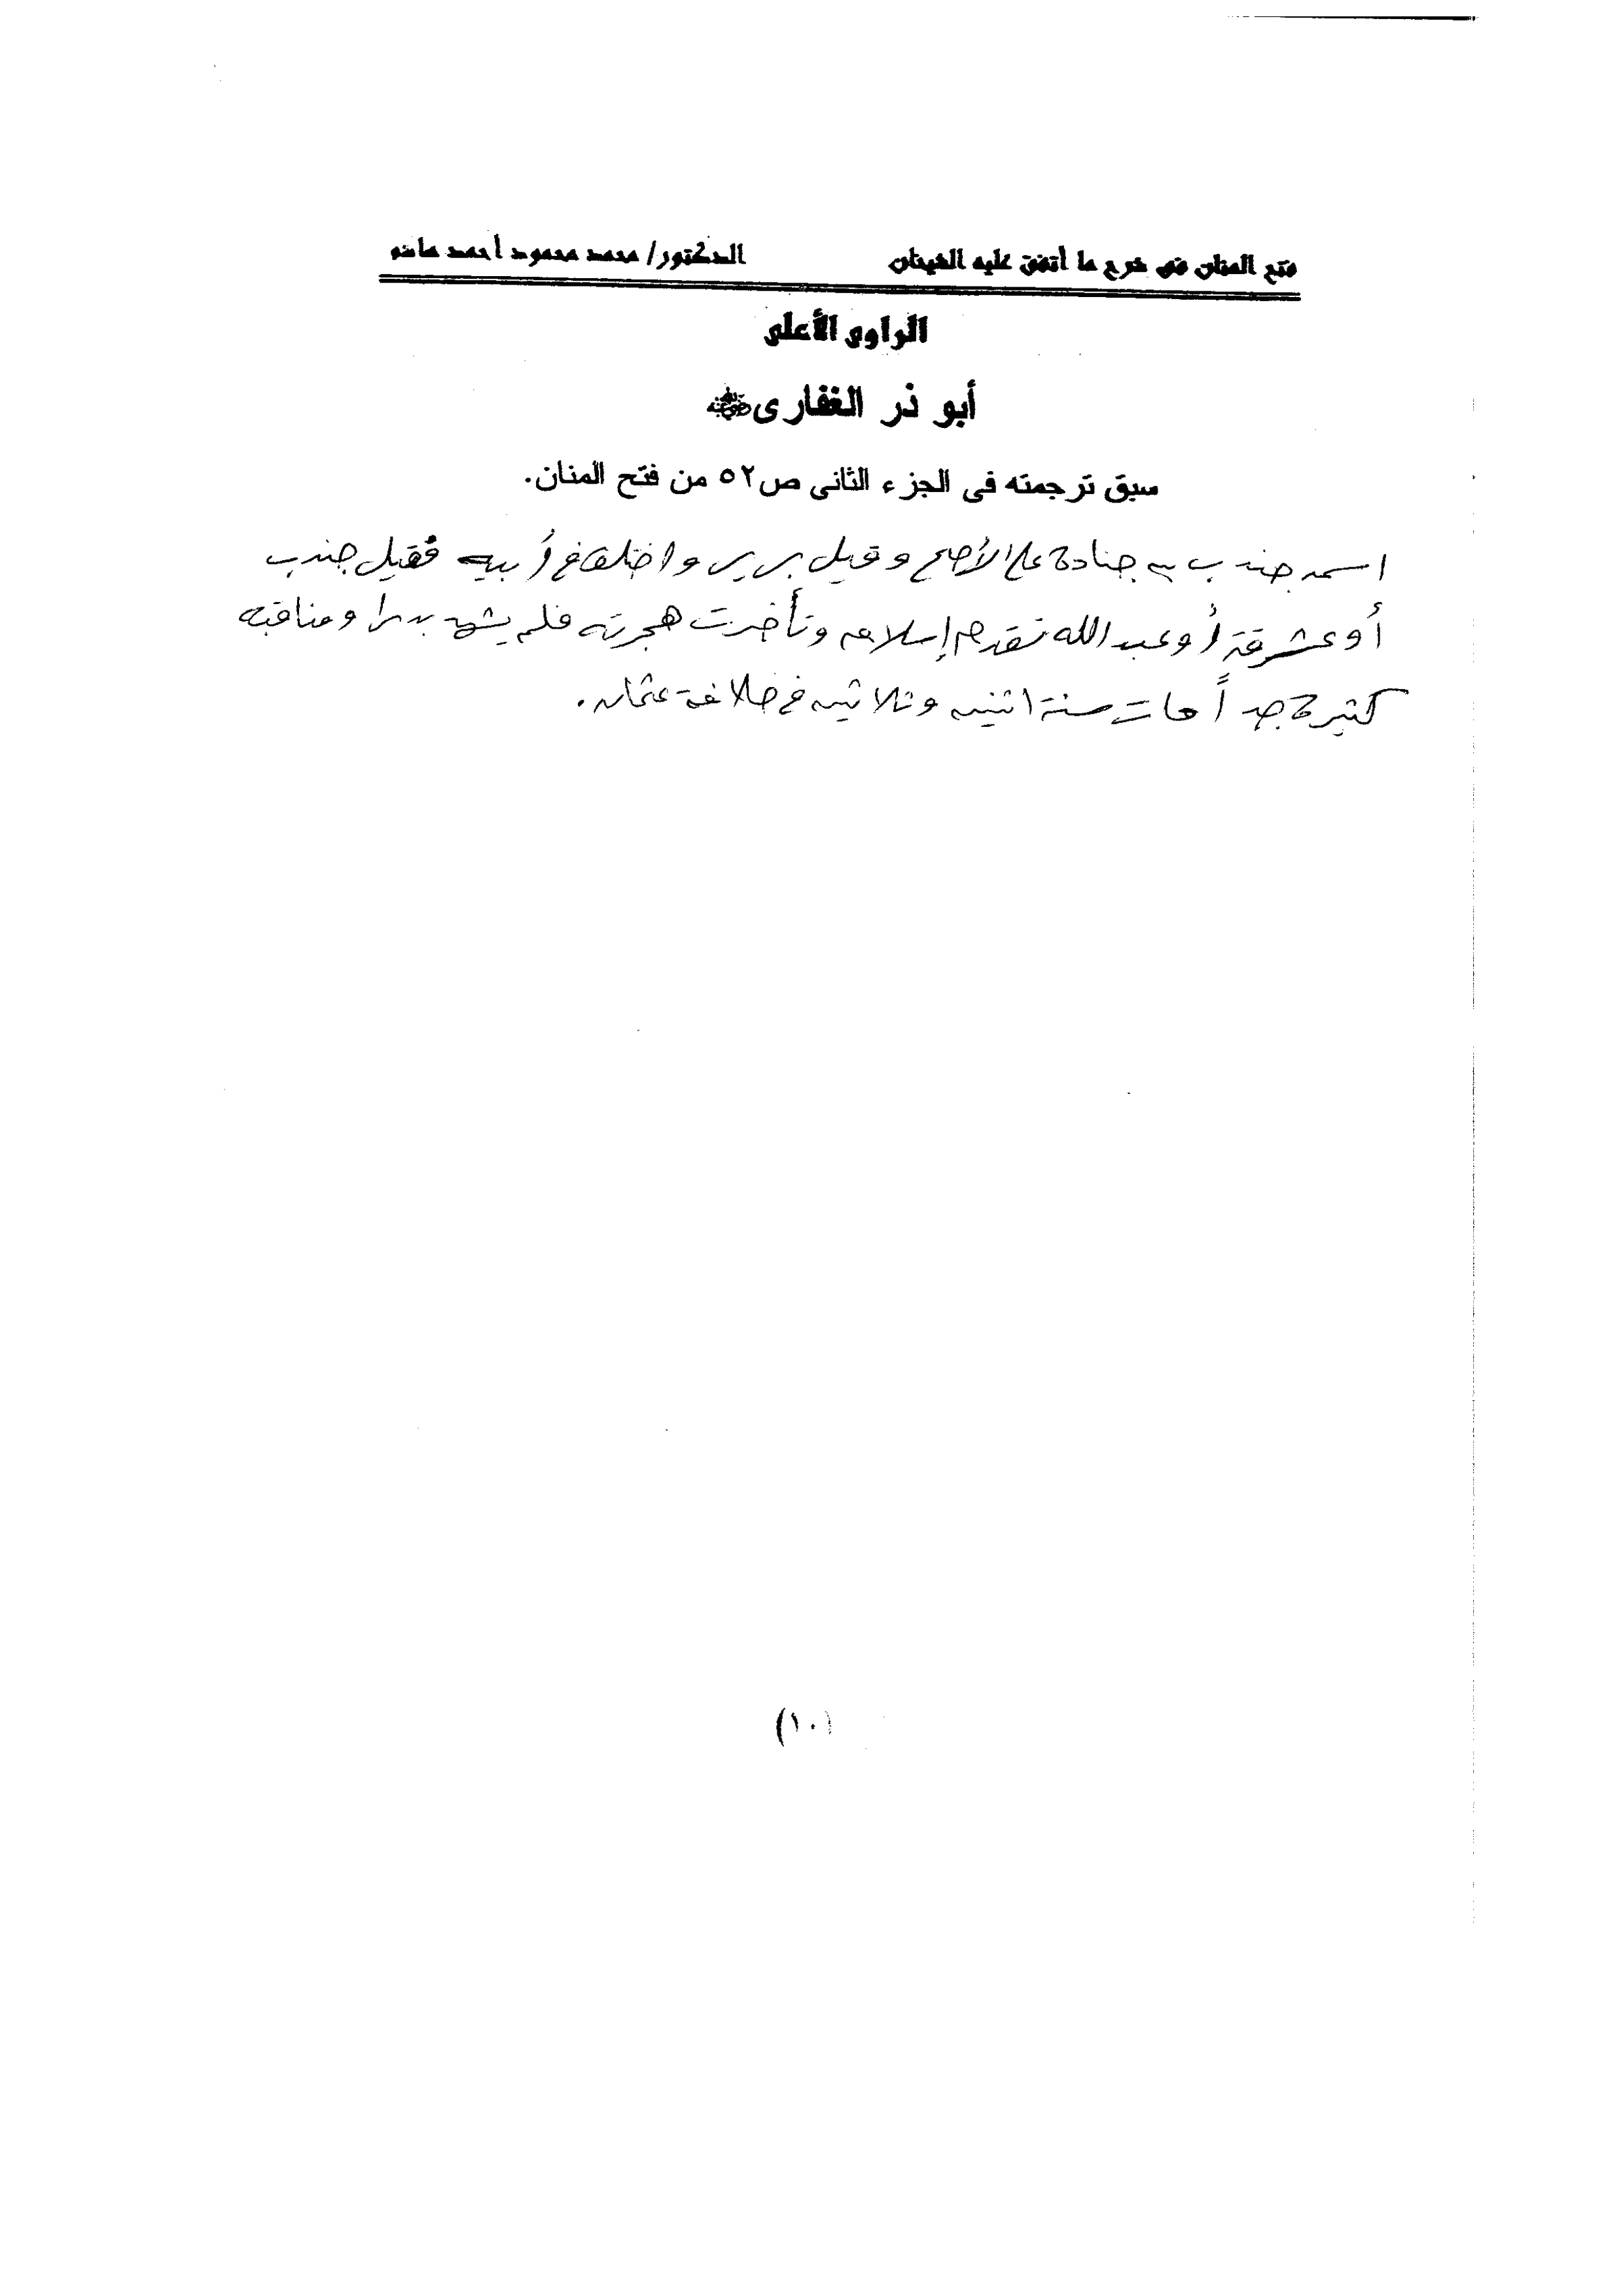 فتح المنان فى شرح ما أتفق عليه الشيخان الدكتور/ محمد محمود أحمد
الراوى الأعلى
أبو ذر الغفارى رضي الله عنه
سبق ترجمته فى الجزء الثانى ص٥٢ من فتح المنان.
اسمه جندب بن جنادة على الأصح وقيل برير واختلف فى أبيه فقيل جندب
أو عشرقة أو عبد الله تقدم إسلامه وتأخرت هجرته فلم يشهد بدرا ومناقبه
كثيرة جداً مات سنة اثنين وثلاثين فى خلافة عثمان.
(١٠)